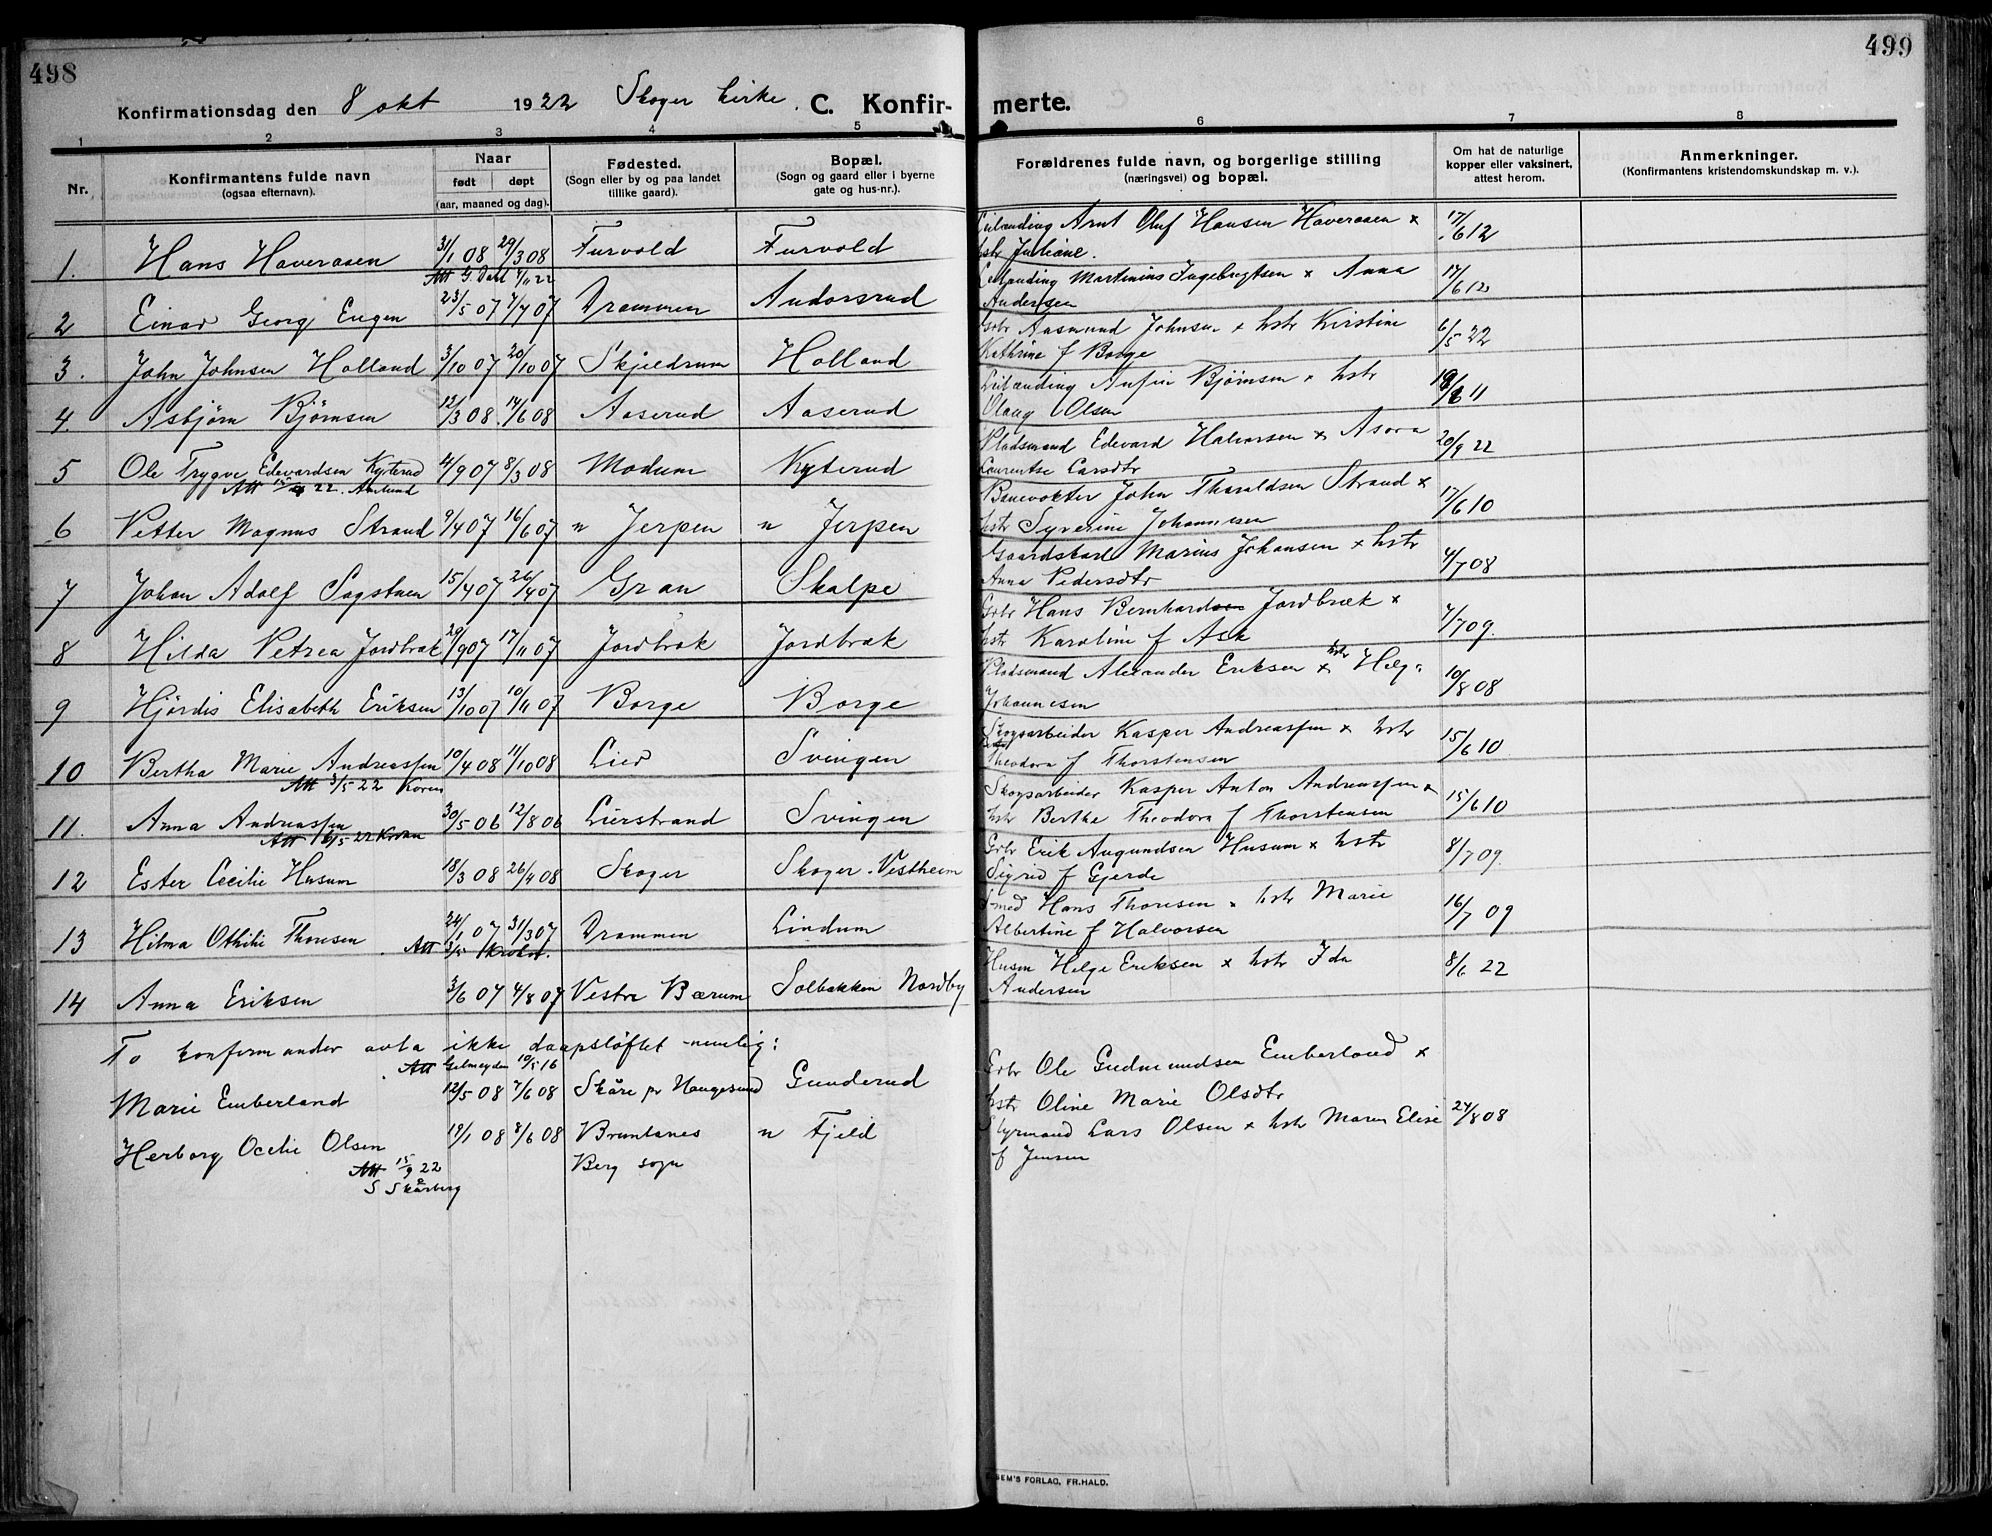 498
499
Konfirmationsdag den 8 okt 1922 Skoger kirke. C. Konfir- merte.
1 2 3 4 5 6 7 8
Nr. Konfirmantens fulde navn (ogsaa efternavn). Naar født døpt (aar, maaned og dag). Fødested. (Sogn eller by og paa landet tillike gaard). Bopæl. (Sogn og gaard eller i byerne gate og hus-nr.). Forældrenes fulde navn, og borgerlige stilling (næringsvei) og bopæl. Om hat de naturlige kopper eller vaksinert, attest herom. Anmerkninger. (Konfirmantens kristendomskundskap m. v.).
1. Hans Haveraasen 31/1 08 29/3 08 Furvold Furvold Leilænding Arnt Oluf Hansen Haveraasen x 17/6 12
hstr Juliane.
Att G. Dahl 4/11 22
2 Einar Georg Eugen 23/5 07 7/7 07 Drammen Andorsrud Leilænding Martinius Ingebregtsen x Anna 17/6 12
Andersen
3. John Johnsen Holland 3/10 07 20/10 07 Skjeldrum Holland Gbr Aasmund Johnsen x hstr Kirstine 6/5 22
Kathrine f Borge
4. Asbjørn Bjørnsen 12/3 08 14/6 08 Aaserud Aaserud Leilænding Anfin Bjørnsen x hstr 19/6 11
Olaug Olsen
5 Ole Trygve Edevardsen Kyterud 4/9 07 8/3 08 Modum Kyterud Pladsmand Edevard Halvorsen x Asora 20/9 22
Laurentse Larsdtr
6 Petter Magnus Strand 9/4 07 16/6 07 " Jerpen " Jerpen Banevokter John Tharaldsen Strand x 17/6 10
hstr Syverine Johannesen
7 Johan Adolf Sagstuen 15/4 07 26/4 07 Gran Skalpe Gaardskarl Marius Johansen x hstr 4/7 08
Anna Pedersdtr
8 Hilda Petrea Jordbræk 29/9 07 17/11 07 Jordbræk Jordbræk Gbr Hans Bernhardsen Jordbræk x 7/7 09.
hstr Karoline f Ask
9 Hjørdis Elisabeth Eriksen 13/10 07 10/11 07 Borge Borge Pladsmand Alexander Eriksen x hstr Helga 10/8 08
Johannesen
10 Bertha Marie Andreassen 10/4 08 11/10 08 Lier Svingen Skogsarbeider Kasper Andreassen x hstr 15/6 10.
Att 3/5 22 Koren
Theodora f Thorstensen
11. Anna Andreassen 30/5 06 12/8 06 Lierstrand Svingen Skogsarbeider Kasper Anton Andreassen x 15/6 10
hstr Berthe Theodora f Thorstensen
12 Ester Cecilie Husum 18/3 08 26/4 08 Skoger Skoger. Vestheim Gbr Erik Augundsen Husum x hstr 8/7 09.
Sigrid f Gjerde
13 Hilma Othilie Thoresen 24/1 07 31/3 07 Drammen Lindum Smed Hans Thoresen x hstr Marie 16/7 09
Albertine f Halvorsen
14 Anna Eriksen 3/6 07 4/8 07 Vestre Bærum Solbakken Nordby Husm Helge Eriksen x hstr Ida 8/6 22
Andersen
To konfirmander avla ikke daapsløftet nemlig:
Marie Emberland 12/5 08 7/6 08 Skåre pr Haugesund Gunderud Gbr Ole Gudmundsen Emberland x
hstr Oline Marie Olsdtr
Herborg Ocelie Olsen 19/1 08 8/6 08 " Fjeld Styrmand Lars Olsen x hstr Maren Elise 24/8 08
Berg sogn
f Jensen
Att 15/9 22
S Skårberg
SEM'S FORLAG, FR. HALD.